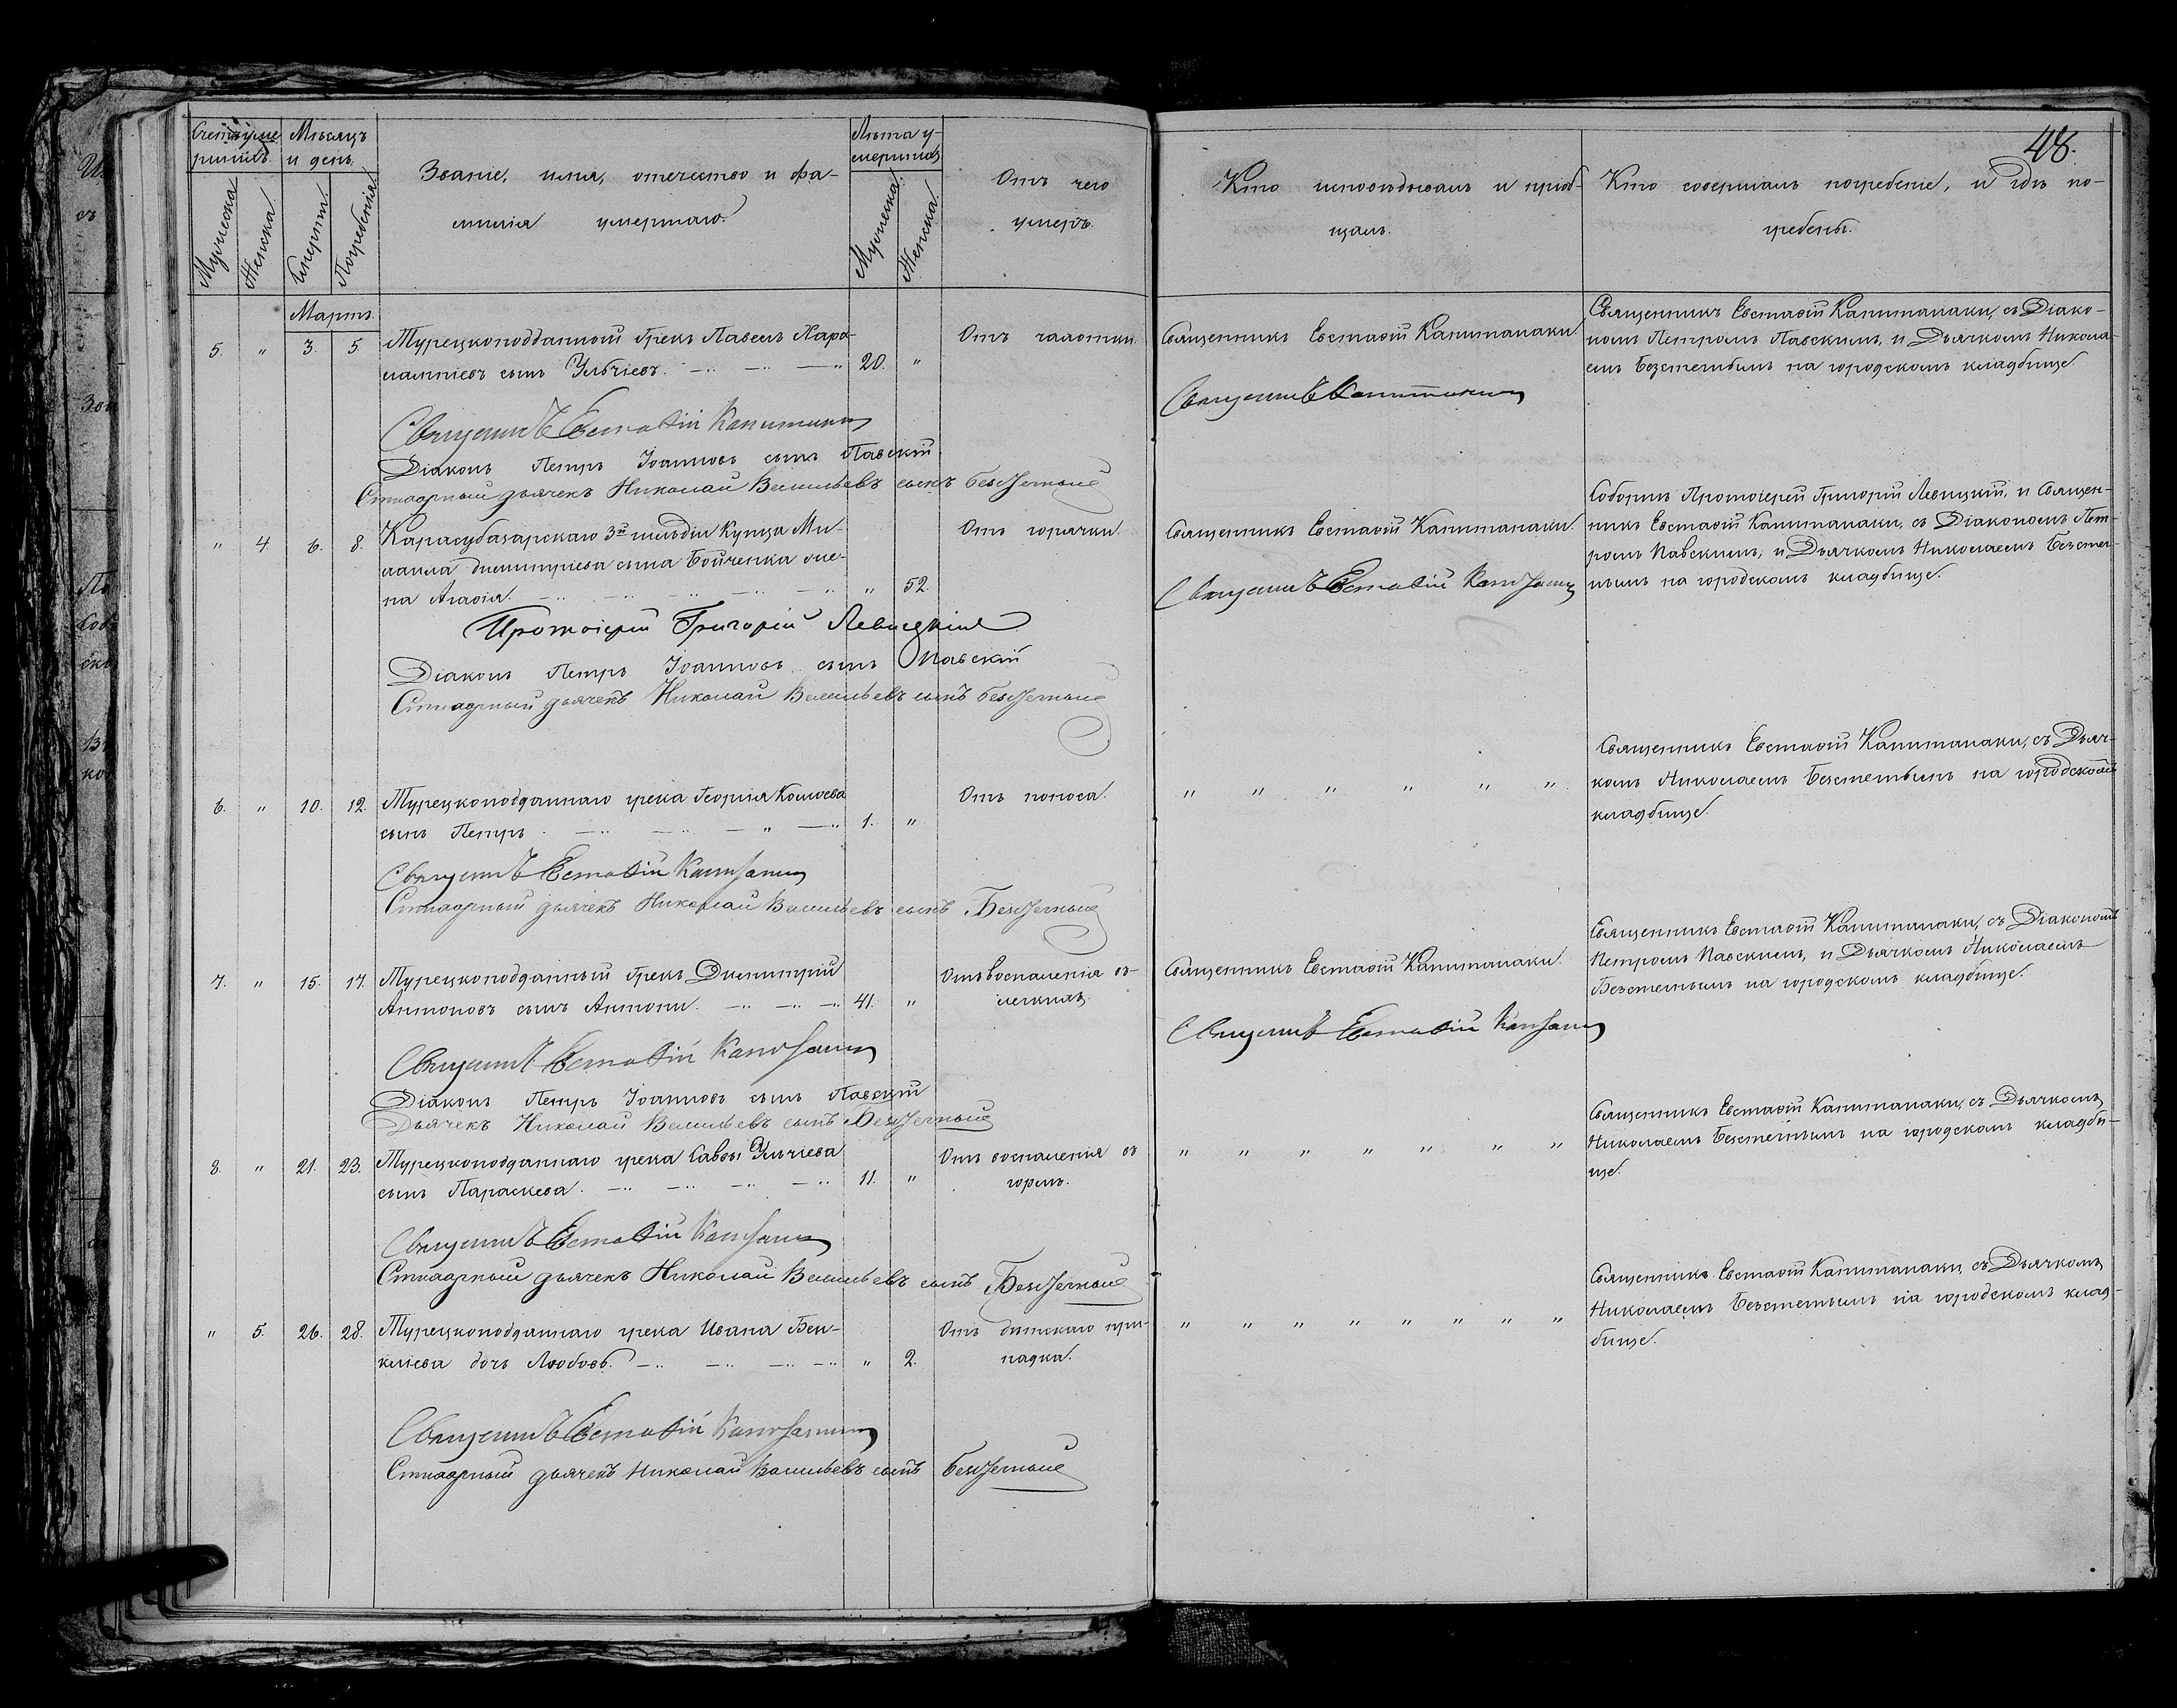 48.
Счетъ уме-
ршихъ.
Мѣсяцъ
и день.
Званіе, имя, отечество и фа-
милія умершаго.
Лѣта у-
мершихъ
Отъ чего
умеръ.
Кто исповѣдывалъ и пріоб-
щалъ.
Кто совершалъ погребеніе, и гдѣ по-
гребены.
Мужеска.
Женска.
Смерти.
Погребенія.
Мужеска.
Женска.
Мартъ.
5. " 3. 5. Турецкоподданный Грекъ Павелъ Хара-
лампіевъ сынъ 20. "
Отъ чахотки.
Священникъ Евстаѳій Капитанаки
Священникъ Евстаѳій Капитанаки, съ Діако-
номъ Петромъ Павскимъ, и Дьячкомъ Никола-
емъ Безсмертнымъ на городскомъ кладбище.
Священникъ Капитанаки
Священникъ Евстаѳій Капитанаки
Діаконъ Петръ Іоанновъ сынъ Павскій
Стихарный дьячекъ Николай Васильевъ сынъ Безсмертный
" 4. 6. 8. Карасубазарскаго 3й гильдіи Купца Ми-
хаила Димитріева сына Бойченка же-
на Агаѳія. " 52.
Отъ горячки.
Священникъ Евстаѳій Капитанаки.
Священникъ Евстаѳій Капитанаки
Соборнѣ Протоіерей Григорій Левицкій, и Священ-
никъ Евстаѳій Капитанаки, съ Діакономъ Пет-
ромъ Павскимъ, и Дьячкомъ Николаемъ Безсмер-
нымъ на городскомъ кладбище.
Протоіерей Григорій Левицкій
Діаконъ Петръ Іоанновъ сынъ Павскій
Стихарный дьячекъ Николай Васильевъ сынъ Безсмертный
6. " 10. 12. Турецкоподданнаго грека Георгія
сынъ Петръ 1. "
Отъ поноса.
" " " " " "
Священникъ Евстаѳій Капитанаки, съ Дьяч-
комъ Николаемъ Безсмертнымъ на городскомъ
кладбище.
Священникъ Евстаѳій Капитанаки
Стихарный дьячекъ Николай Васильевъ сынъ Безсмертный
7. " 15. 17. Турецкоподданный Грекъ Димитрій
Антоновъ сынъ Антони. 41. "
Отъ воспаленія въ
легкихъ.
Священникъ Евстаѳій Капитанаки.
Священникъ Евстаѳій Капитанаки
Священникъ Евстаѳій Капитанаки, съ Діакономъ
Петромъ Павскимъ, и Дьячкомъ Николаемъ
Безсмертнымъ на городскомъ кладбище.
Священникъ Евстаѳій Капитанаки
Діаконъ Петръ Іоанновъ сынъ Павскій
Дьячекъ Николай Васильевъ сынъ Безсмертный
8. " 21. 23. Турецкоподданнаго грека Саввы
сынъ Параскева. 11. "
Отъ воспаленія въ
горлѣ.
" " " " " " "
Священникъ Евстаѳій Капитанаки, съ Дьячкомъ
Николаемъ Безсмертнымъ на городскомъ кладби-
ще.
Священникъ Евстаѳій Капитанаки
Стихарный дьячекъ Николай Васильевъ сынъ Безсмертный
" 5. 26. 28. Турецкоподданнаго грека Ивана Бек-
кліева дочь Любовь. " 2.
Отъ дѣтскаго при-
падка.
" " " " " " " "
Священникъ Евстаѳій Капитанаки, съ Дьячкомъ
Николаемъ Безсмертнымъ на городскомъ клад-
бище.
Священникъ Евстаѳій Капитанаки
Стихарный дьячекъ Николай Васильевъ сынъ Безсмертный